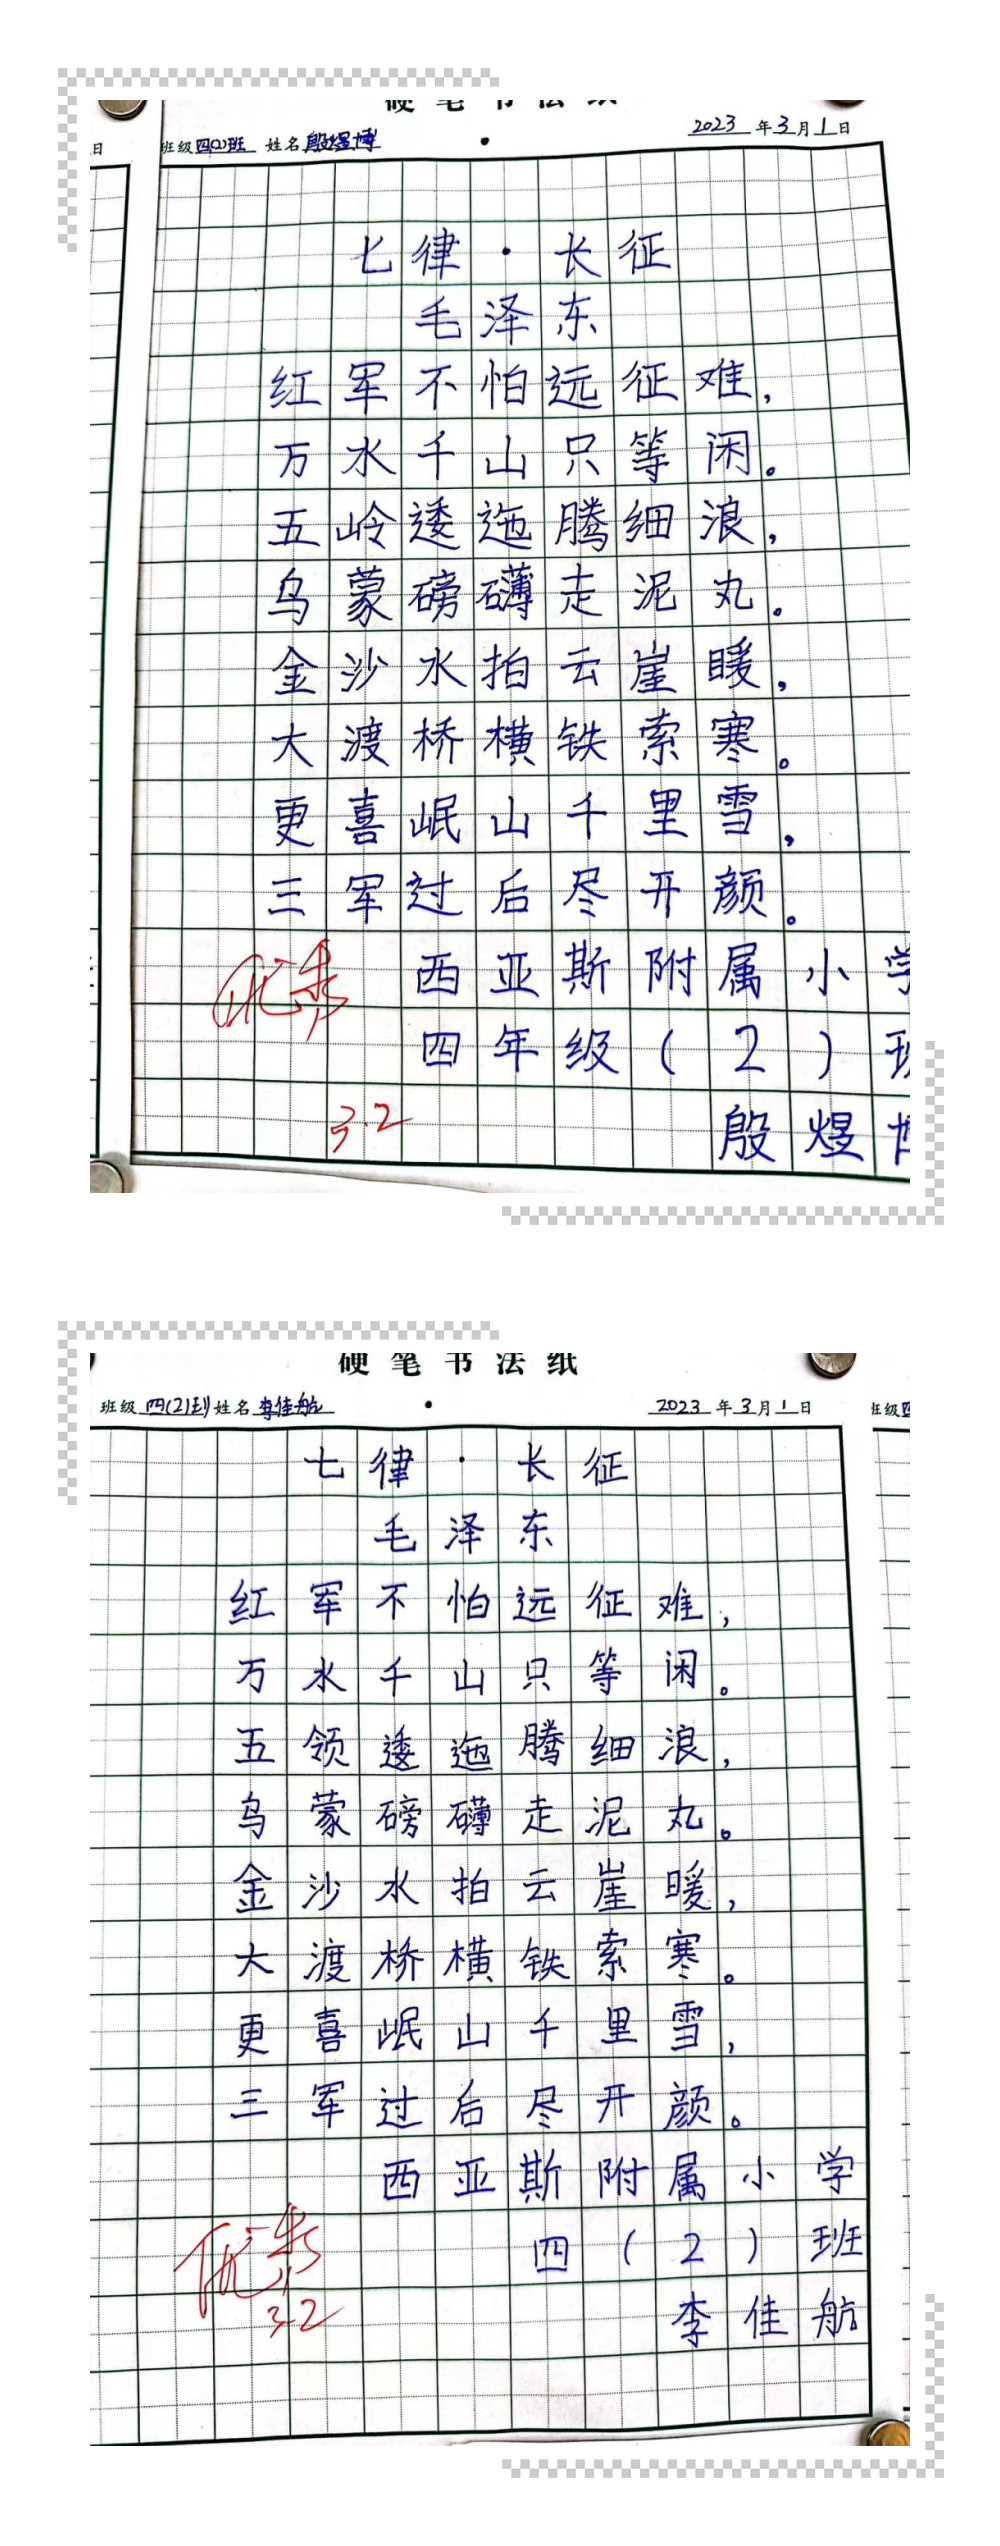 硬笔书法纸
日
班级 四(2)班 姓名 殷煜博 2023 年 3 月 1 日
七律·长征
毛泽东
红军不怕远征难，
万水千山只等闲。
五岭逶迤腾细浪，
乌蒙磅礴走泥丸。
金沙水拍云崖暖，
大渡桥横铁索寒。
更喜岷山千里雪，
三军过后尽开颜。
西亚斯附属小学
四年级(2)班
殷煜博
优秀
3.2
硬笔书法纸
班级 四(2)班 姓名 李佳航 2023 年 3 月 1 日
班级
七律·长征
毛泽东
红军不怕远征难，
万水千山只等闲。
五领逶迤腾细浪，
乌蒙磅礴走泥丸。
金沙水拍云崖暖，
大渡桥横铁索寒。
更喜岷山千里雪，
三军过后尽开颜。
西亚斯附属小学
四(2)班
李佳航
优秀
3.2